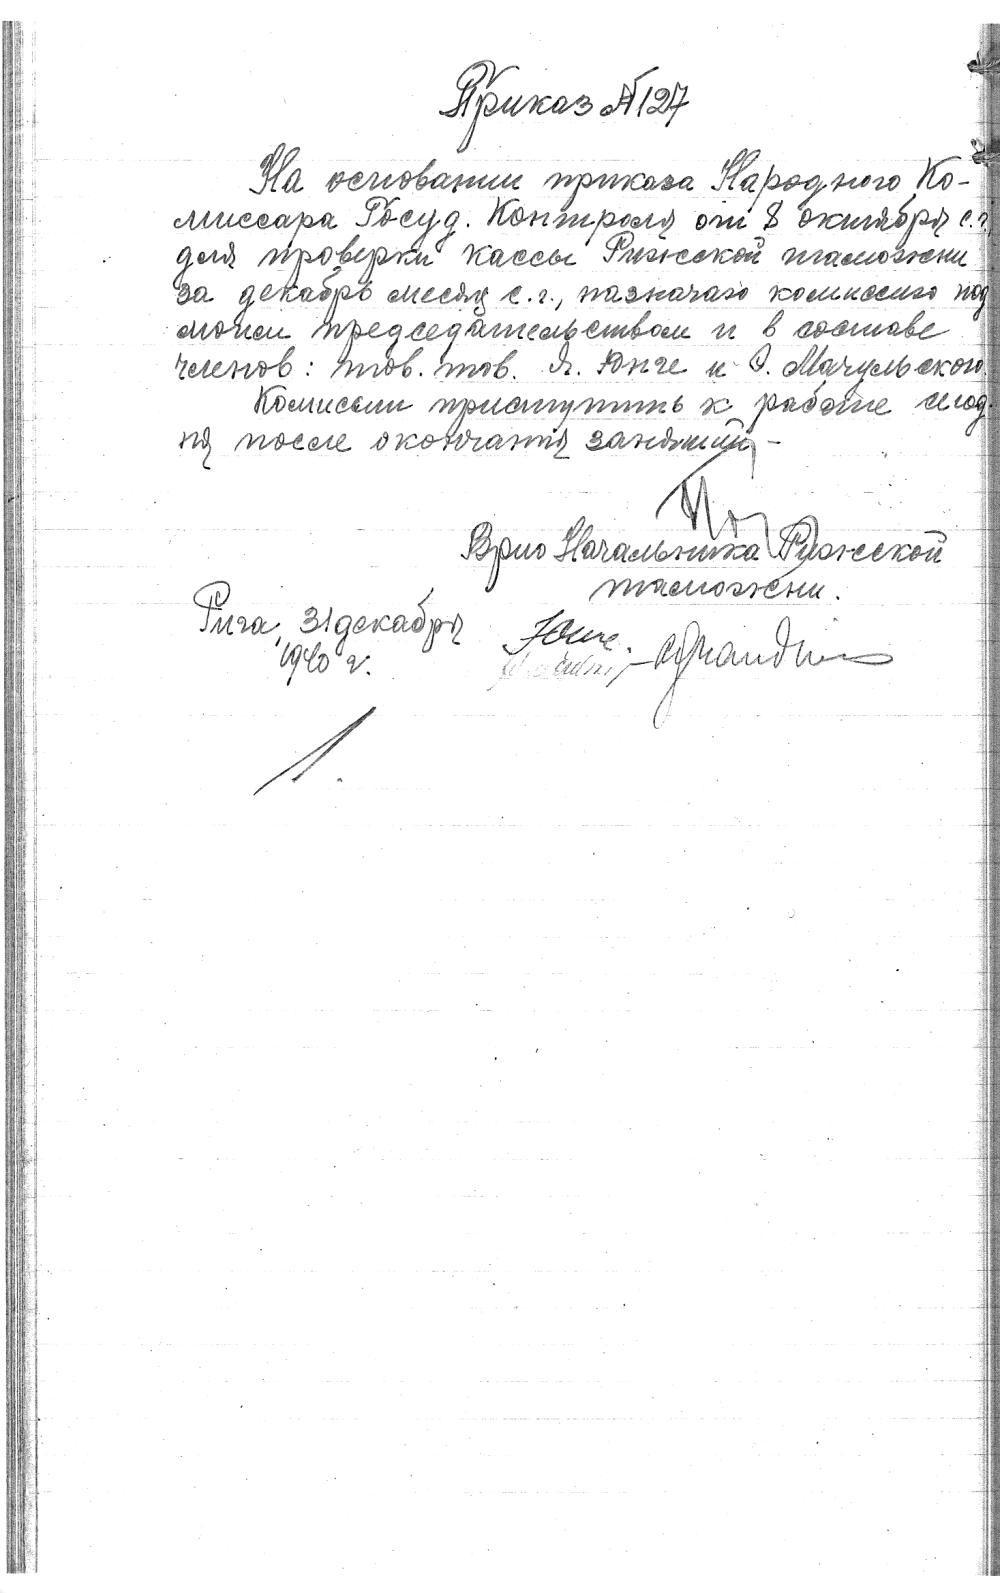 Приказ №127
На основании приказа Народного Ко-
миссара Госуд. Контроля от 8 октября с.г.
для проверки кассы Рижской таможни
за декабрь месяц с.г., назначаю комиссию под
моим председательством и в составе
членов: тов. тов. Я. Юнге и О. Мачульского.
Комиссии приступить к работе сегод-
ня после окончания занятий. –
Врио Начальника Рижской
таможни.
Рига, 31 декабря
1940 г.
Юнге.